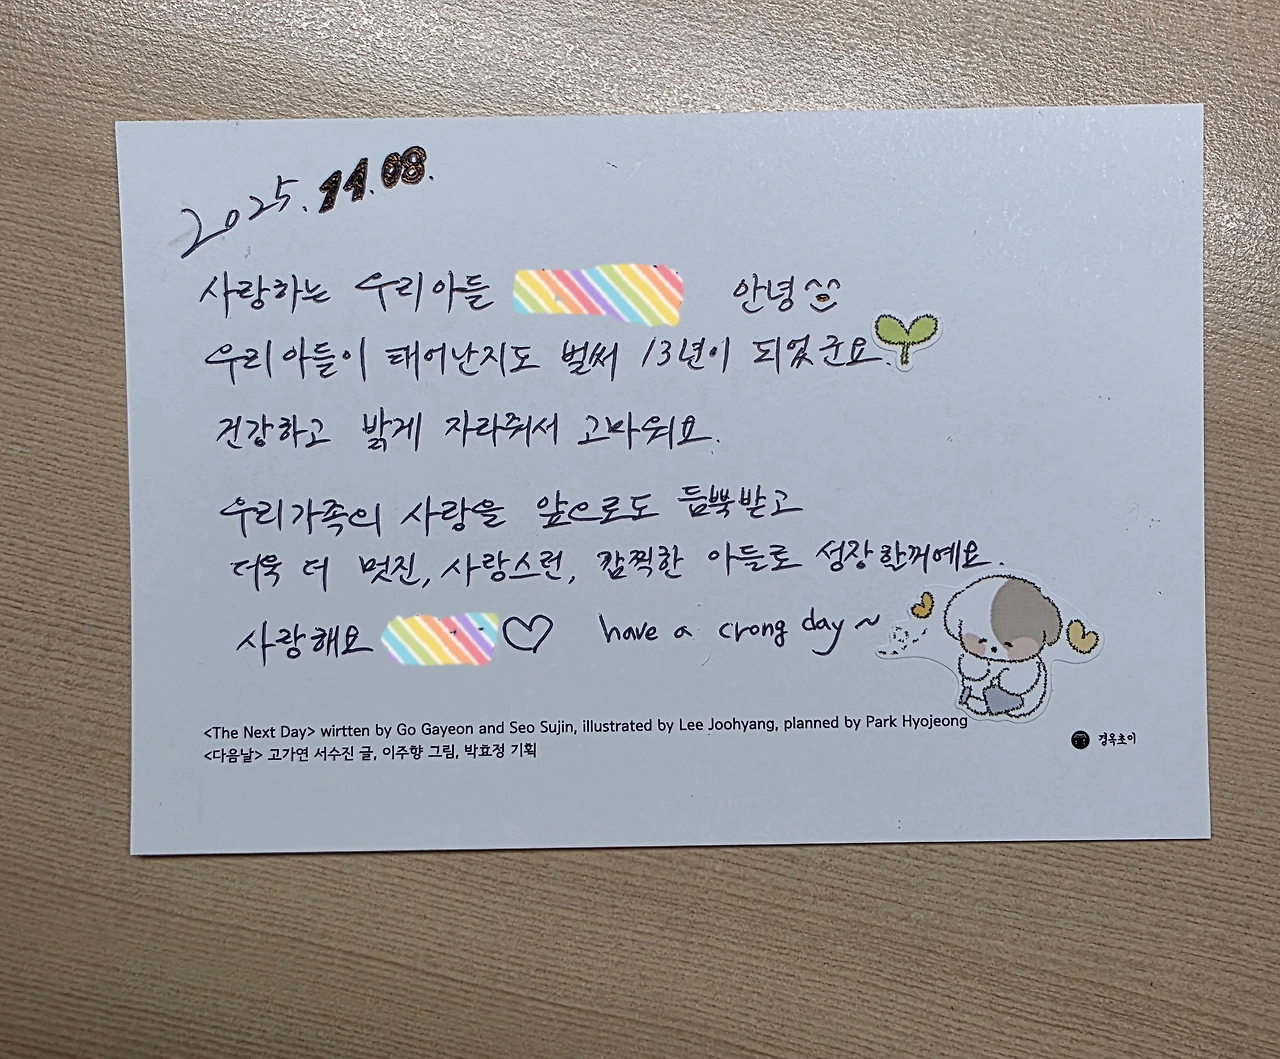 2025.11.08.
사랑하는 우리아들 안녕^^
우리아들이 태어난지도 벌써 13년이 되었군요.
건강하고 밝게 자라줘서 고마워요.
우리가족의 사랑을 앞으로도 듬뿍받고
더욱 더 멋진, 사랑스런, 깜찍한 아들로 성장할꺼예요.
사랑해요 ♡ have a crong day~
<The Next Day> wirtten by Go Gayeon and Seo Sujin, illustrated by Lee Joohyang, planned by Park Hyojeong
<다음날> 고가연 서수진 글, 이주향 그림, 박효정 기획
경옥초이